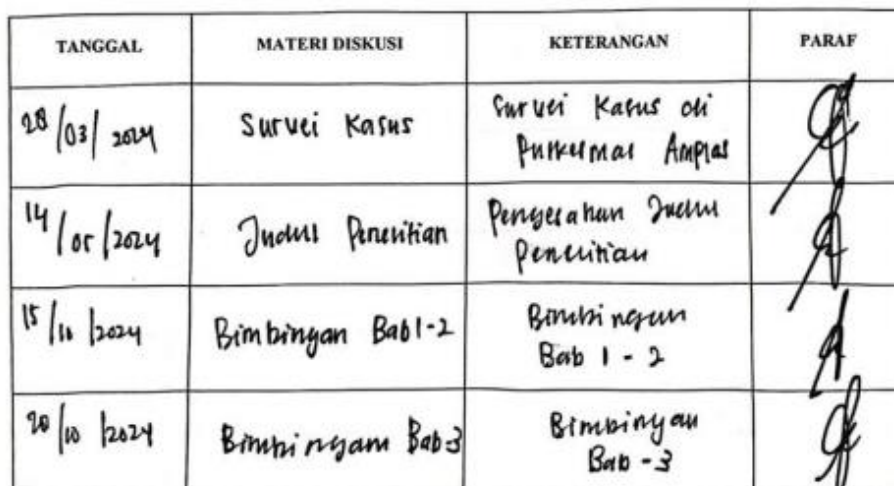 TANGGAL MATERI DISKUSI KETERANGAN PARAF
28/03/2024 Survei Kasus Survei Kasus di
Puskesmas Amplas
14/05/2024 Judul Penelitian Pengesahan Judul
Penelitian
15/10/2024 Bimbingan Bab 1-2 Bimbingan
Bab 1 - 2
20/10/2024 Bimbingan Bab-3 Bimbingan
Bab - 3